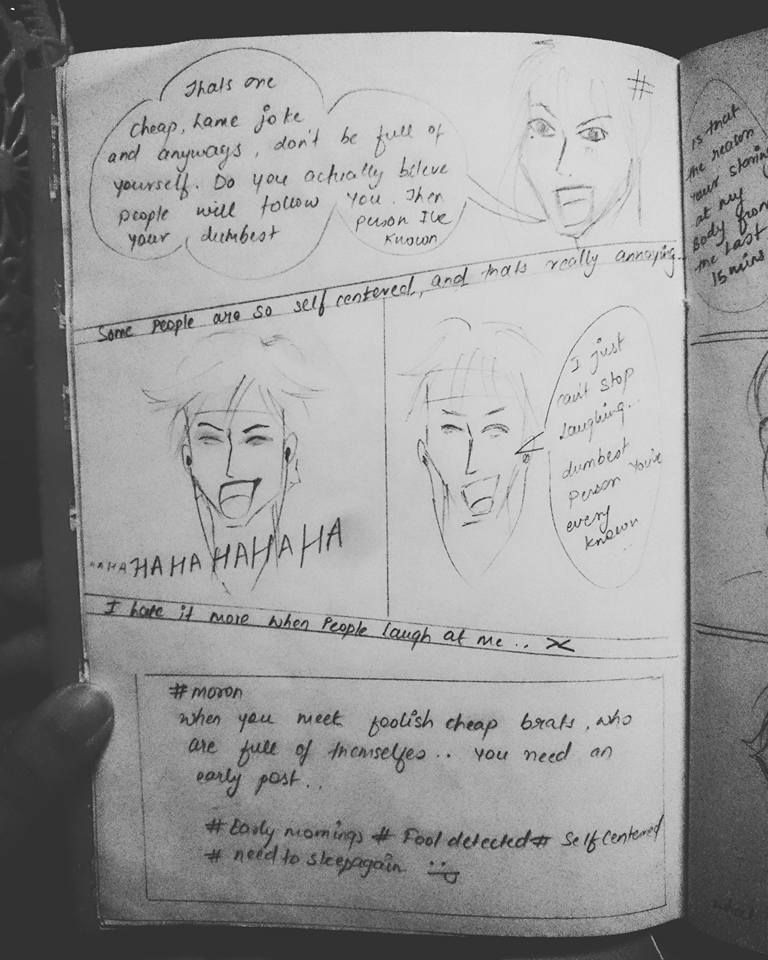 Thats one
cheap, Lame joke
and anyways, don't be full of
yourself. Do you actually bileve
people will follow you. Then
your, dumbest
person I've
known
#
Some people are so self centered, and thats really annoying...
HAHAHAHAHAHAHA
I just
can't stop
laughing...
dumbest
person you're
every
known
...
I hate it more when people laugh at me.. X
#moron
when you meet foolish cheap brats, who
are full of themselfes.. you need an
early post..
#Early mornings # Fool detected # Self Centered
# need to sleepagain
is that
the reason
your staring
at my
body from
the last
15 mins